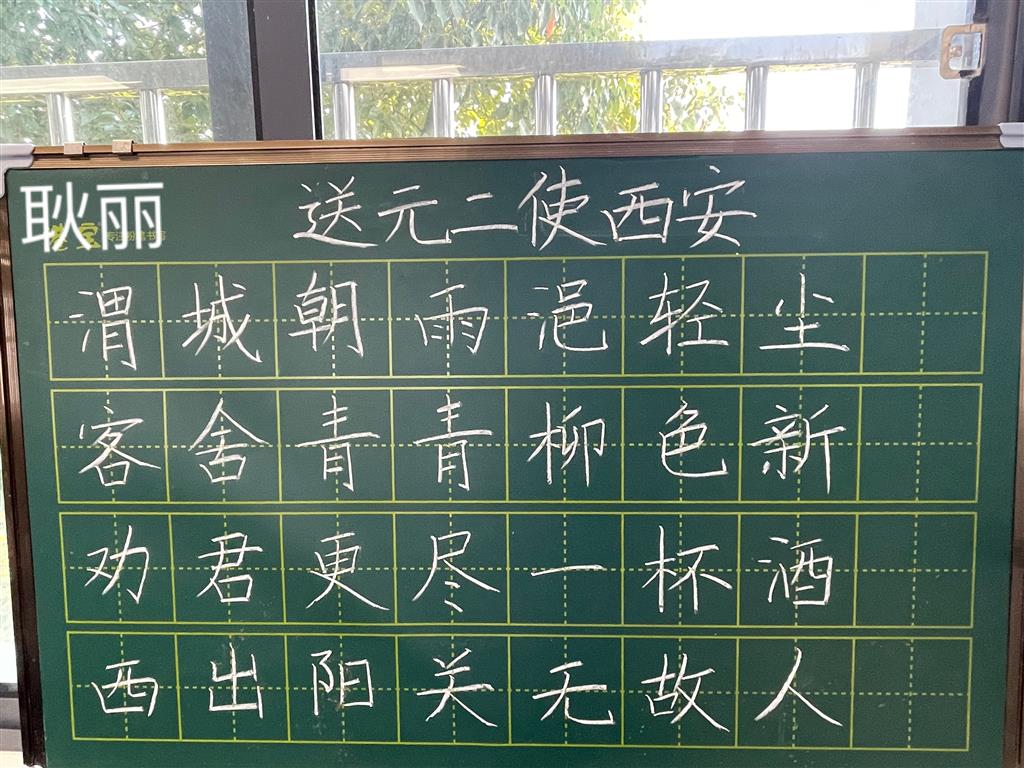 耿丽
送元二使西安
渭城朝雨浥轻尘
客舍青青柳色新
劝君更尽一杯酒
西出阳关无故人